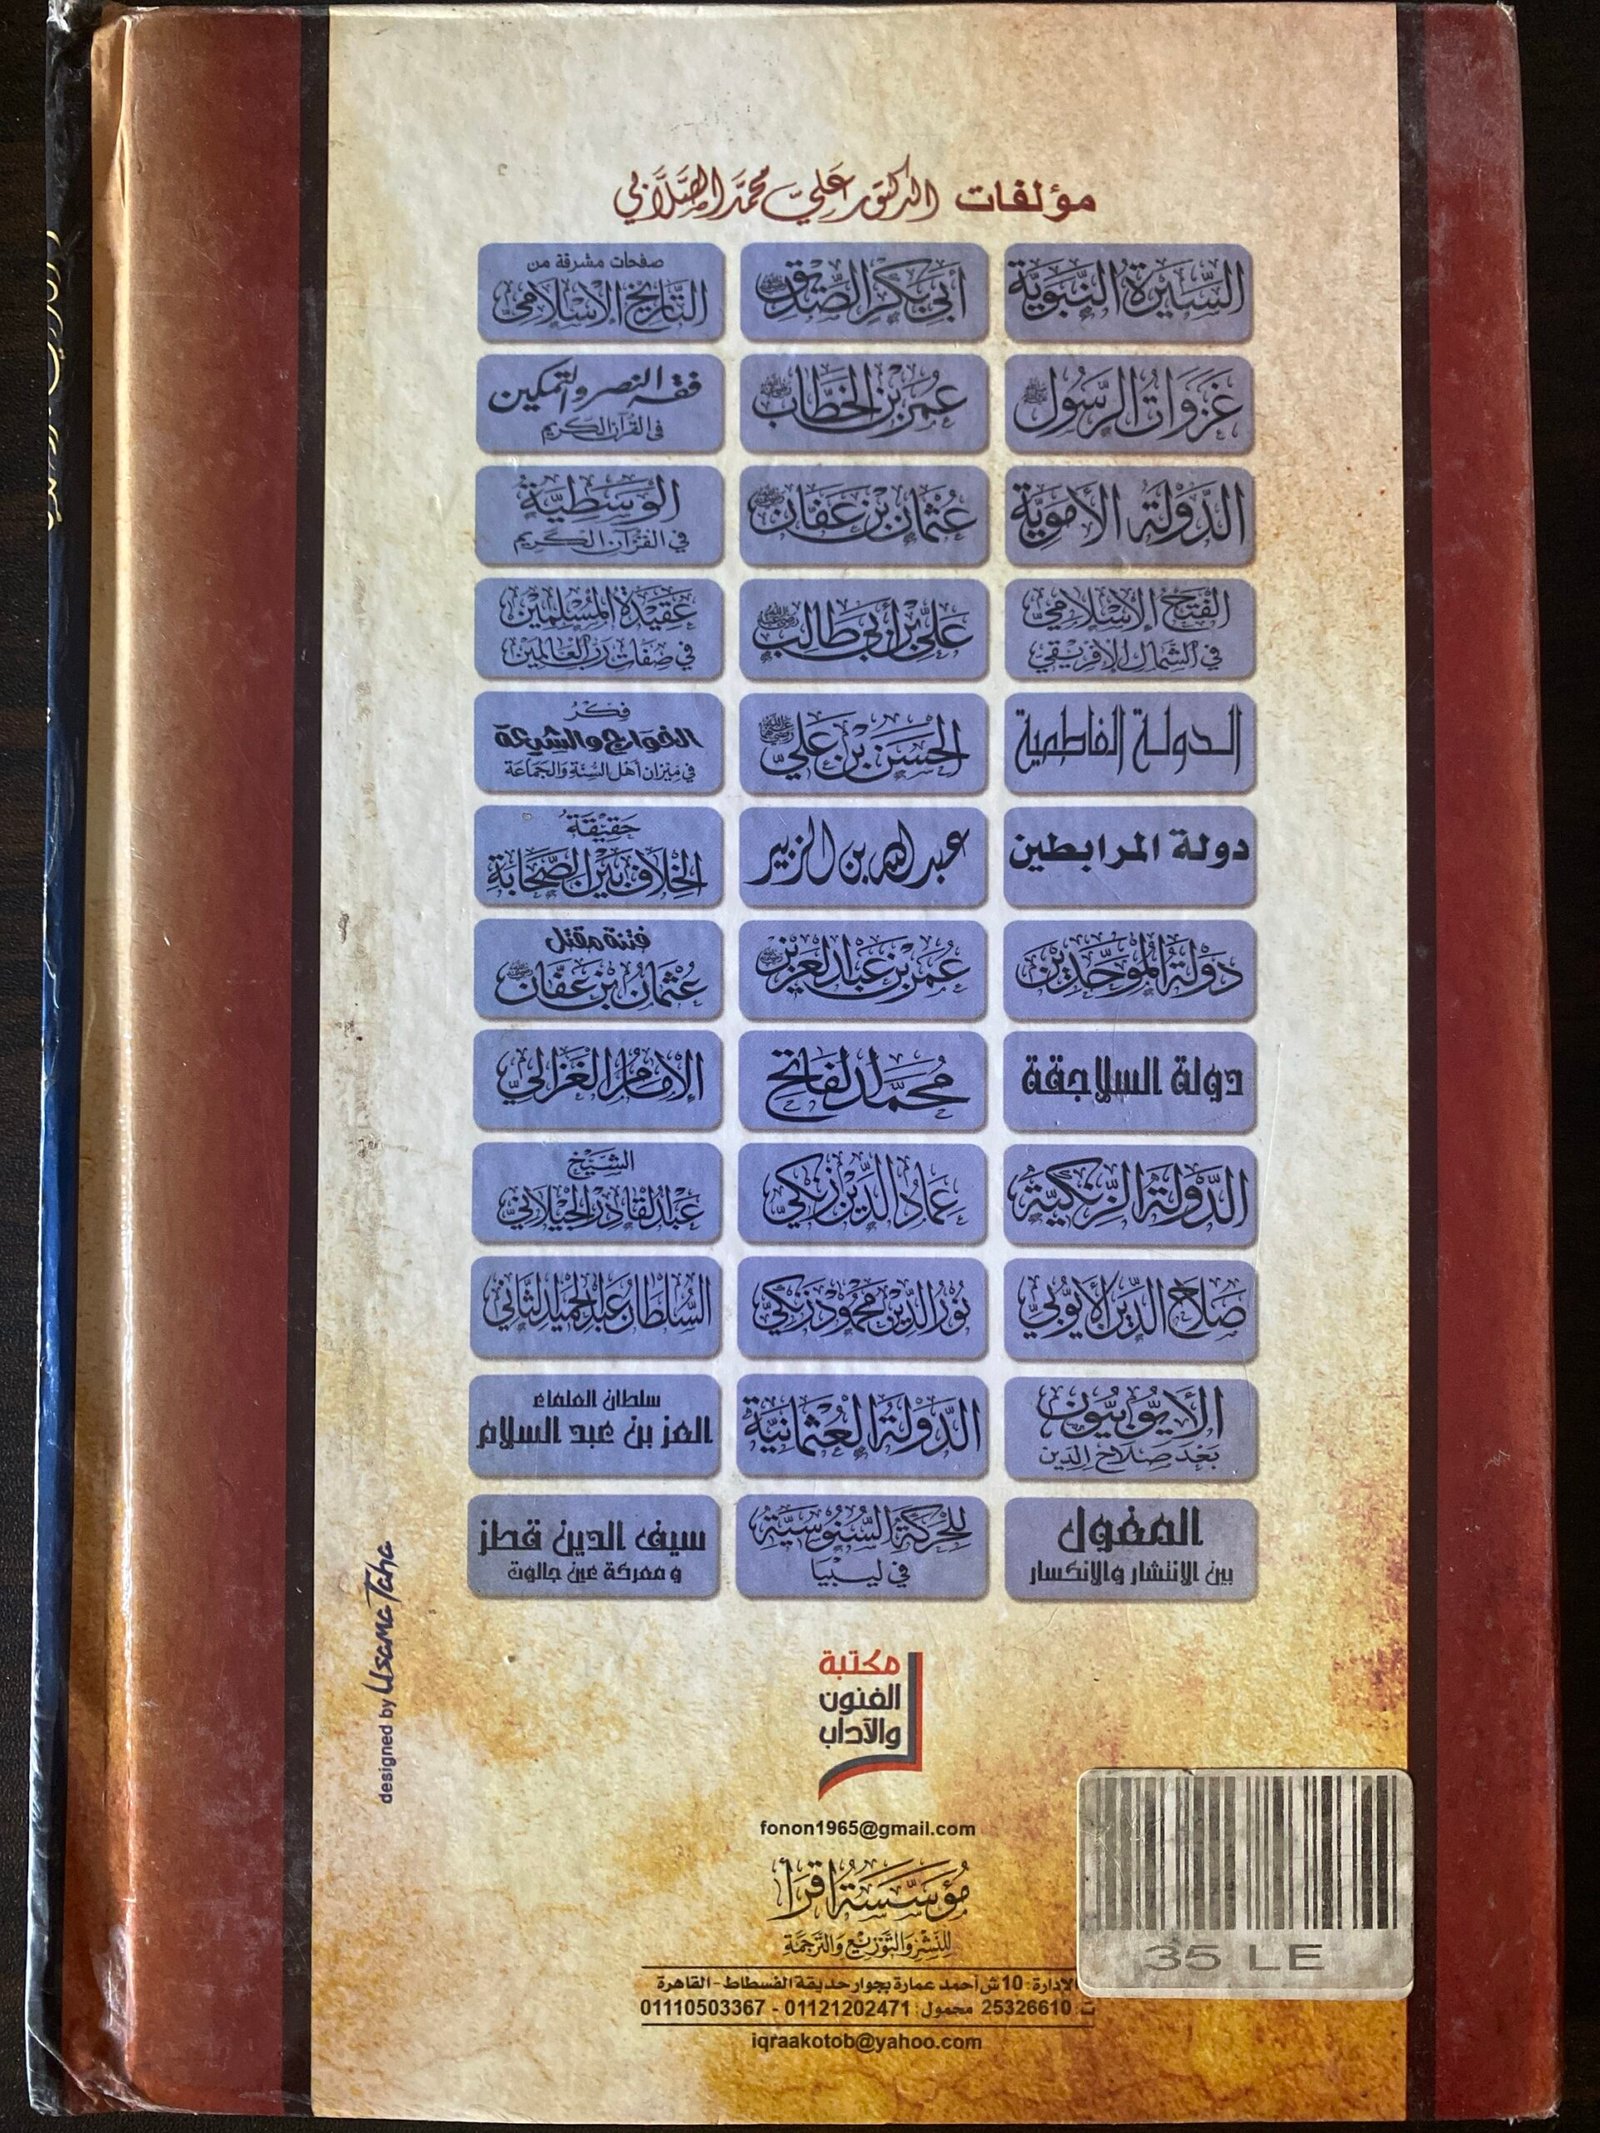 مؤلفات الدكتور علي محمد الصلابي
السيرة النبوية
أبي بكر الصديق
صفحات مشرقة من
التاريخ الإسلامي
غزوات الرسول ﷺ
عمر بن الخطاب
فقه النصر والتمكين
في القرآن الكريم
الدولة الأموية
عثمان بن عفان
الوسطية
في القرآن الكريم
الفتح الإسلامي
في الشمال الإفريقي
علي بن أبي طالب
عقيدة المسلمين
في صفات رب العالمين
الدولة الفاطمية
الحسن بن علي
فكر
الخوارج والشيعة
في ميزان أهل السنة والجماعة
دولة المرابطين
عبد الله بن الزبير
حقيقة
الخلاف بين الصحابة
دولة الموحدين
عمر بن عبد العزيز
فتنة مقتل
عثمان بن عفان
دولة السلاجقة
محمد الفاتح
الإمام الغزالي
الدولة الزنكية
عماد الدين زنكي
الشيخ
عبد القادر الجيلاني
صلاح الدين الأيوبي
نور الدين محمود زنكي
السلطان عبد الحميد الثاني
الأيوبيون
بعد صلاح الدين
الدولة العثمانية
سلطان العلماء
العز بن عبد السلام
المغول
بين الانتشار والانكسار
للحركة السنوسية
في ليبيا
سيف الدين قطز
ومعركة عين جالوت
مكتبة
الفنون
والآداب
fonon1965@gmail.com
مؤسسة اقرأ
للنشر والتوزيع والترجمة
الإدارة - 10 ش أحمد عمارة بجوار حديقة الفسطاط - القاهرة
ت: 25326610 محمول: 01121202471 - 01110503367
iqraakotob@yahoo.com
35 LE
designed by Usama Taha